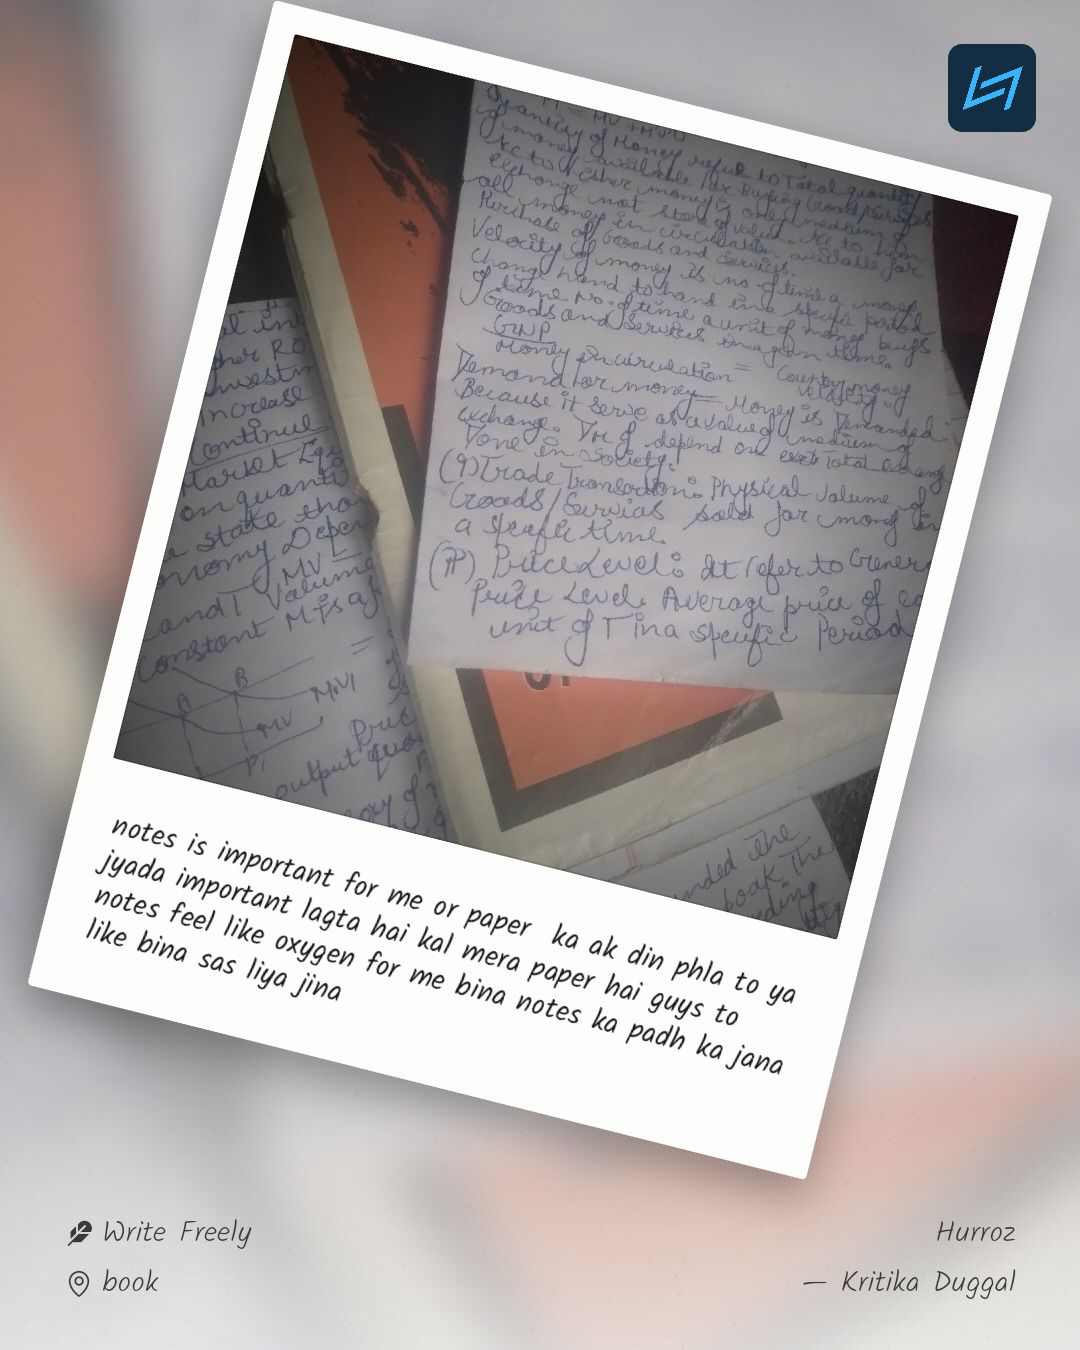 Quantity of Money refer to Total quantity
of money available for Buying Good/Services
Acc to Fisher money is only medium of
exchange not store of value. Acc to him
all money in circulation available for
Purchase of Goods and Services.
Velocity of money is no. of time a money
change hand to hand in a specific period
of time No. of time a unit of money buys
Goods and Services in a given time.
GNP
Money in circulation = Country money
velocity of
Demand for money = Money is Demanded
Because it serve as a valued medium of
exchange. depend on Total
Done in Society.
Trade Transaction: Physical volume of
Goods/Services sold for money in
a specific time.
(P) Price Level: It refer to
Price Level. Average price of
unit of T in a specific Period
investm
increase
Continue
Market
on quanti
state tha
Depen
MV
and T Volume
constant
A B
MV MV1
P1 Pric
output quo
ory of
unded the
book The
notes is important for me or paper ka ak din phla to ya
jyada important lagta hai kal mera paper hai guys to
notes feel like oxygen for me bina notes ka padh ka jana
like bina sas liya jina
Write Freely
Hurroz
book
— Kritika Duggal